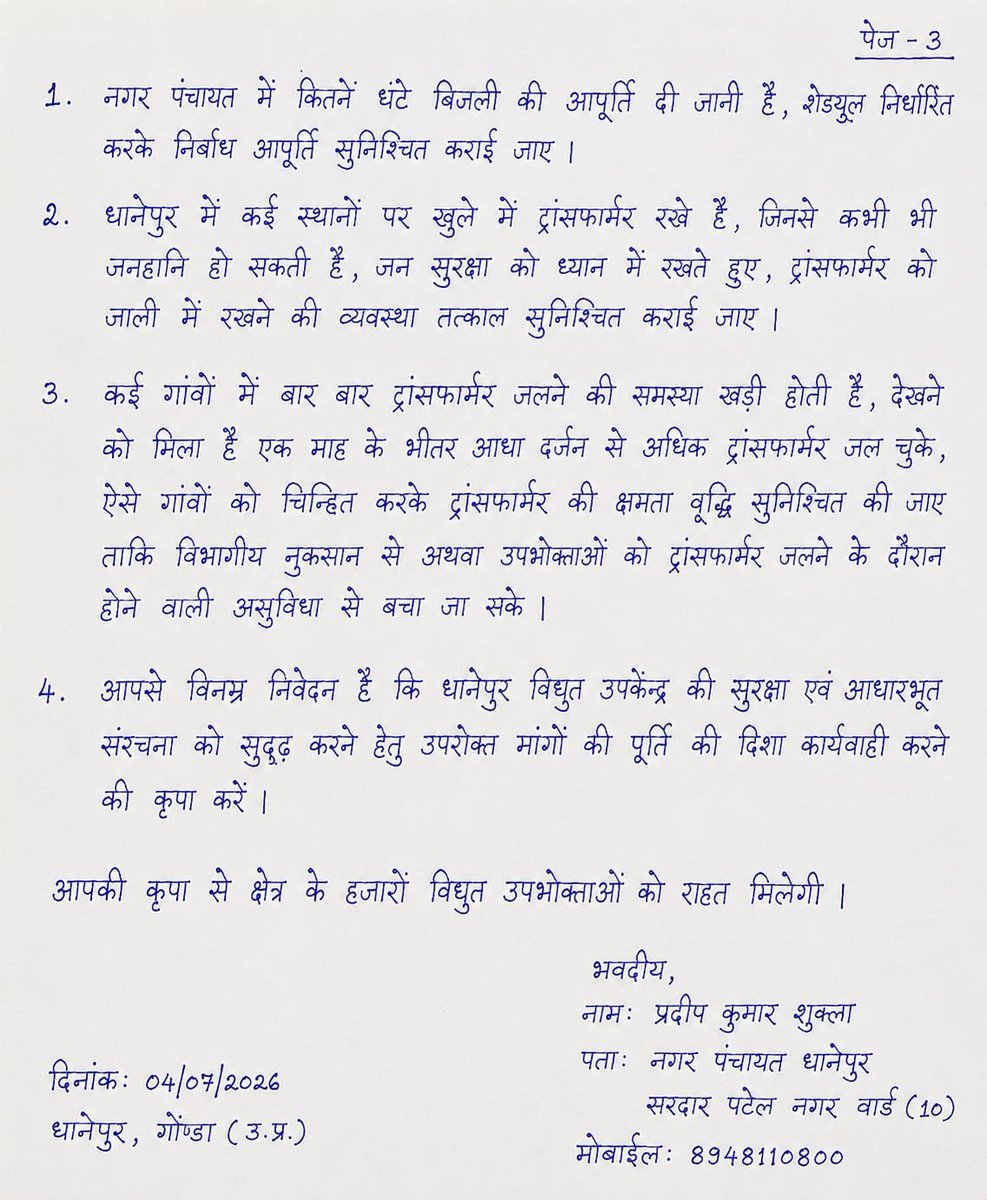 पेज - 3
1. नगर पंचायत में कितनें घंटे बिजली की आपूर्ति दी जानी है, शेडयूल निर्धारित
करके निर्बाध आपूर्ति सुनिश्चित कराई जाए।
2. धानेपुर में कई स्थानों पर खुले में ट्रांसफार्मर रखे है, जिनसे कभी भी
जनहानि हो सकती है, जन सुरक्षा को ध्यान में रखते हुए, ट्रांसफार्मर को
जाली में रखने की व्यवस्था तत्काल सुनिश्चित कराई जाए।
3. कई गांवों में बार बार ट्रांसफार्मर जलने की समस्या खड़ी होती है, देखने
को मिला है एक माह के भीतर आधा दर्जन से अधिक ट्रांसफार्मर जल चुके,
ऐसे गांवों को चिन्हित करके ट्रांसफार्मर की क्षमता वृद्धि सुनिश्चित की जाए
ताकि विभागीय नुकसान से अथवा उपभोक्ताओं को ट्रांसफार्मर जलने के दौरान
होने वाली असुविधा से बचा जा सके।
4. आपसे विनम्र निवेदन है कि धानेपुर विधुत उपकेंन्द्र की सुरक्षा एवं आधारभूत
संरचना को सुदृढ़ करने हेतु उपरोक्त मांगों की पूर्ति की दिशा कार्यवाही करने
की कृपा करें।
आपकी कृपा से क्षेत्र के हजारों विधुत उपभोक्ताओं को राहत मिलेगी।
भवदीय,
नाम: प्रदीप कुमार शुक्ला
पता: नगर पंचायत धानेपुर
सरदार पटेल नगर वार्ड (10)
मोबाईल: 8948110800
दिनांक: 04/07/2026
धानेपुर, गोंण्डा (उ.प्र.)